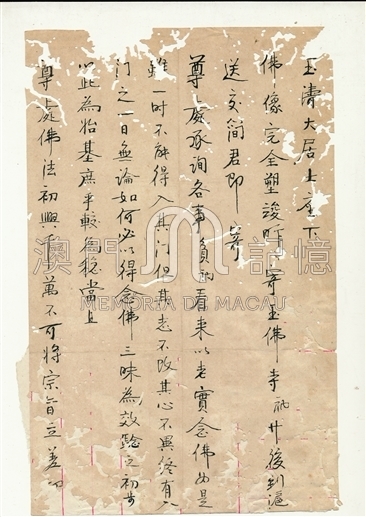 玉清大居士座下
佛像完全塑竣昨寄玉佛寺 廿後到滬
送交简君即寄
尊處承询各事 看来以老實念佛
雖一时不能得入其门但其志不改其心不異終有入
门之一日無論如何必以得念佛三昧為效驗之初步
以此為始基庶乎較為稳當且
尊處佛法初興 萬不可將宗旨立差
澳門記憶
MEMÓRIA DE MACAU